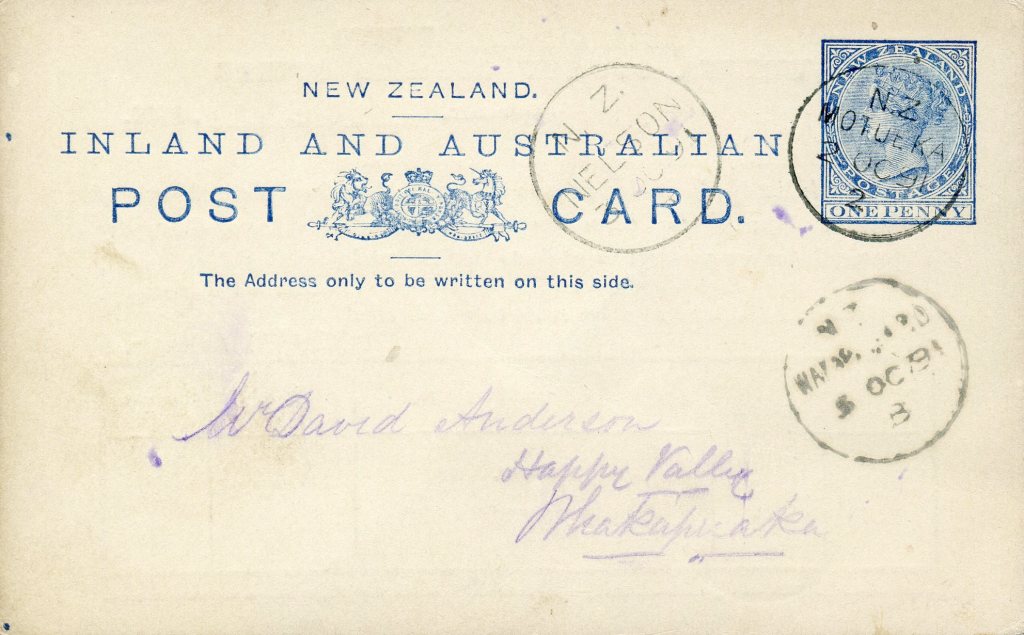 NEW ZEALAND.
INLAND AND AUSTRALIAN
POST CARD.
The Address only to be written on this side.
NEW ZEALAND
POSTAGE
ONE PENNY
N.Z.
MOTUEKA
2 OC
2
N. Z.
NELSON
OC
OC 91
B
Mr David Anderson
Happy Valley
Whakapuaka